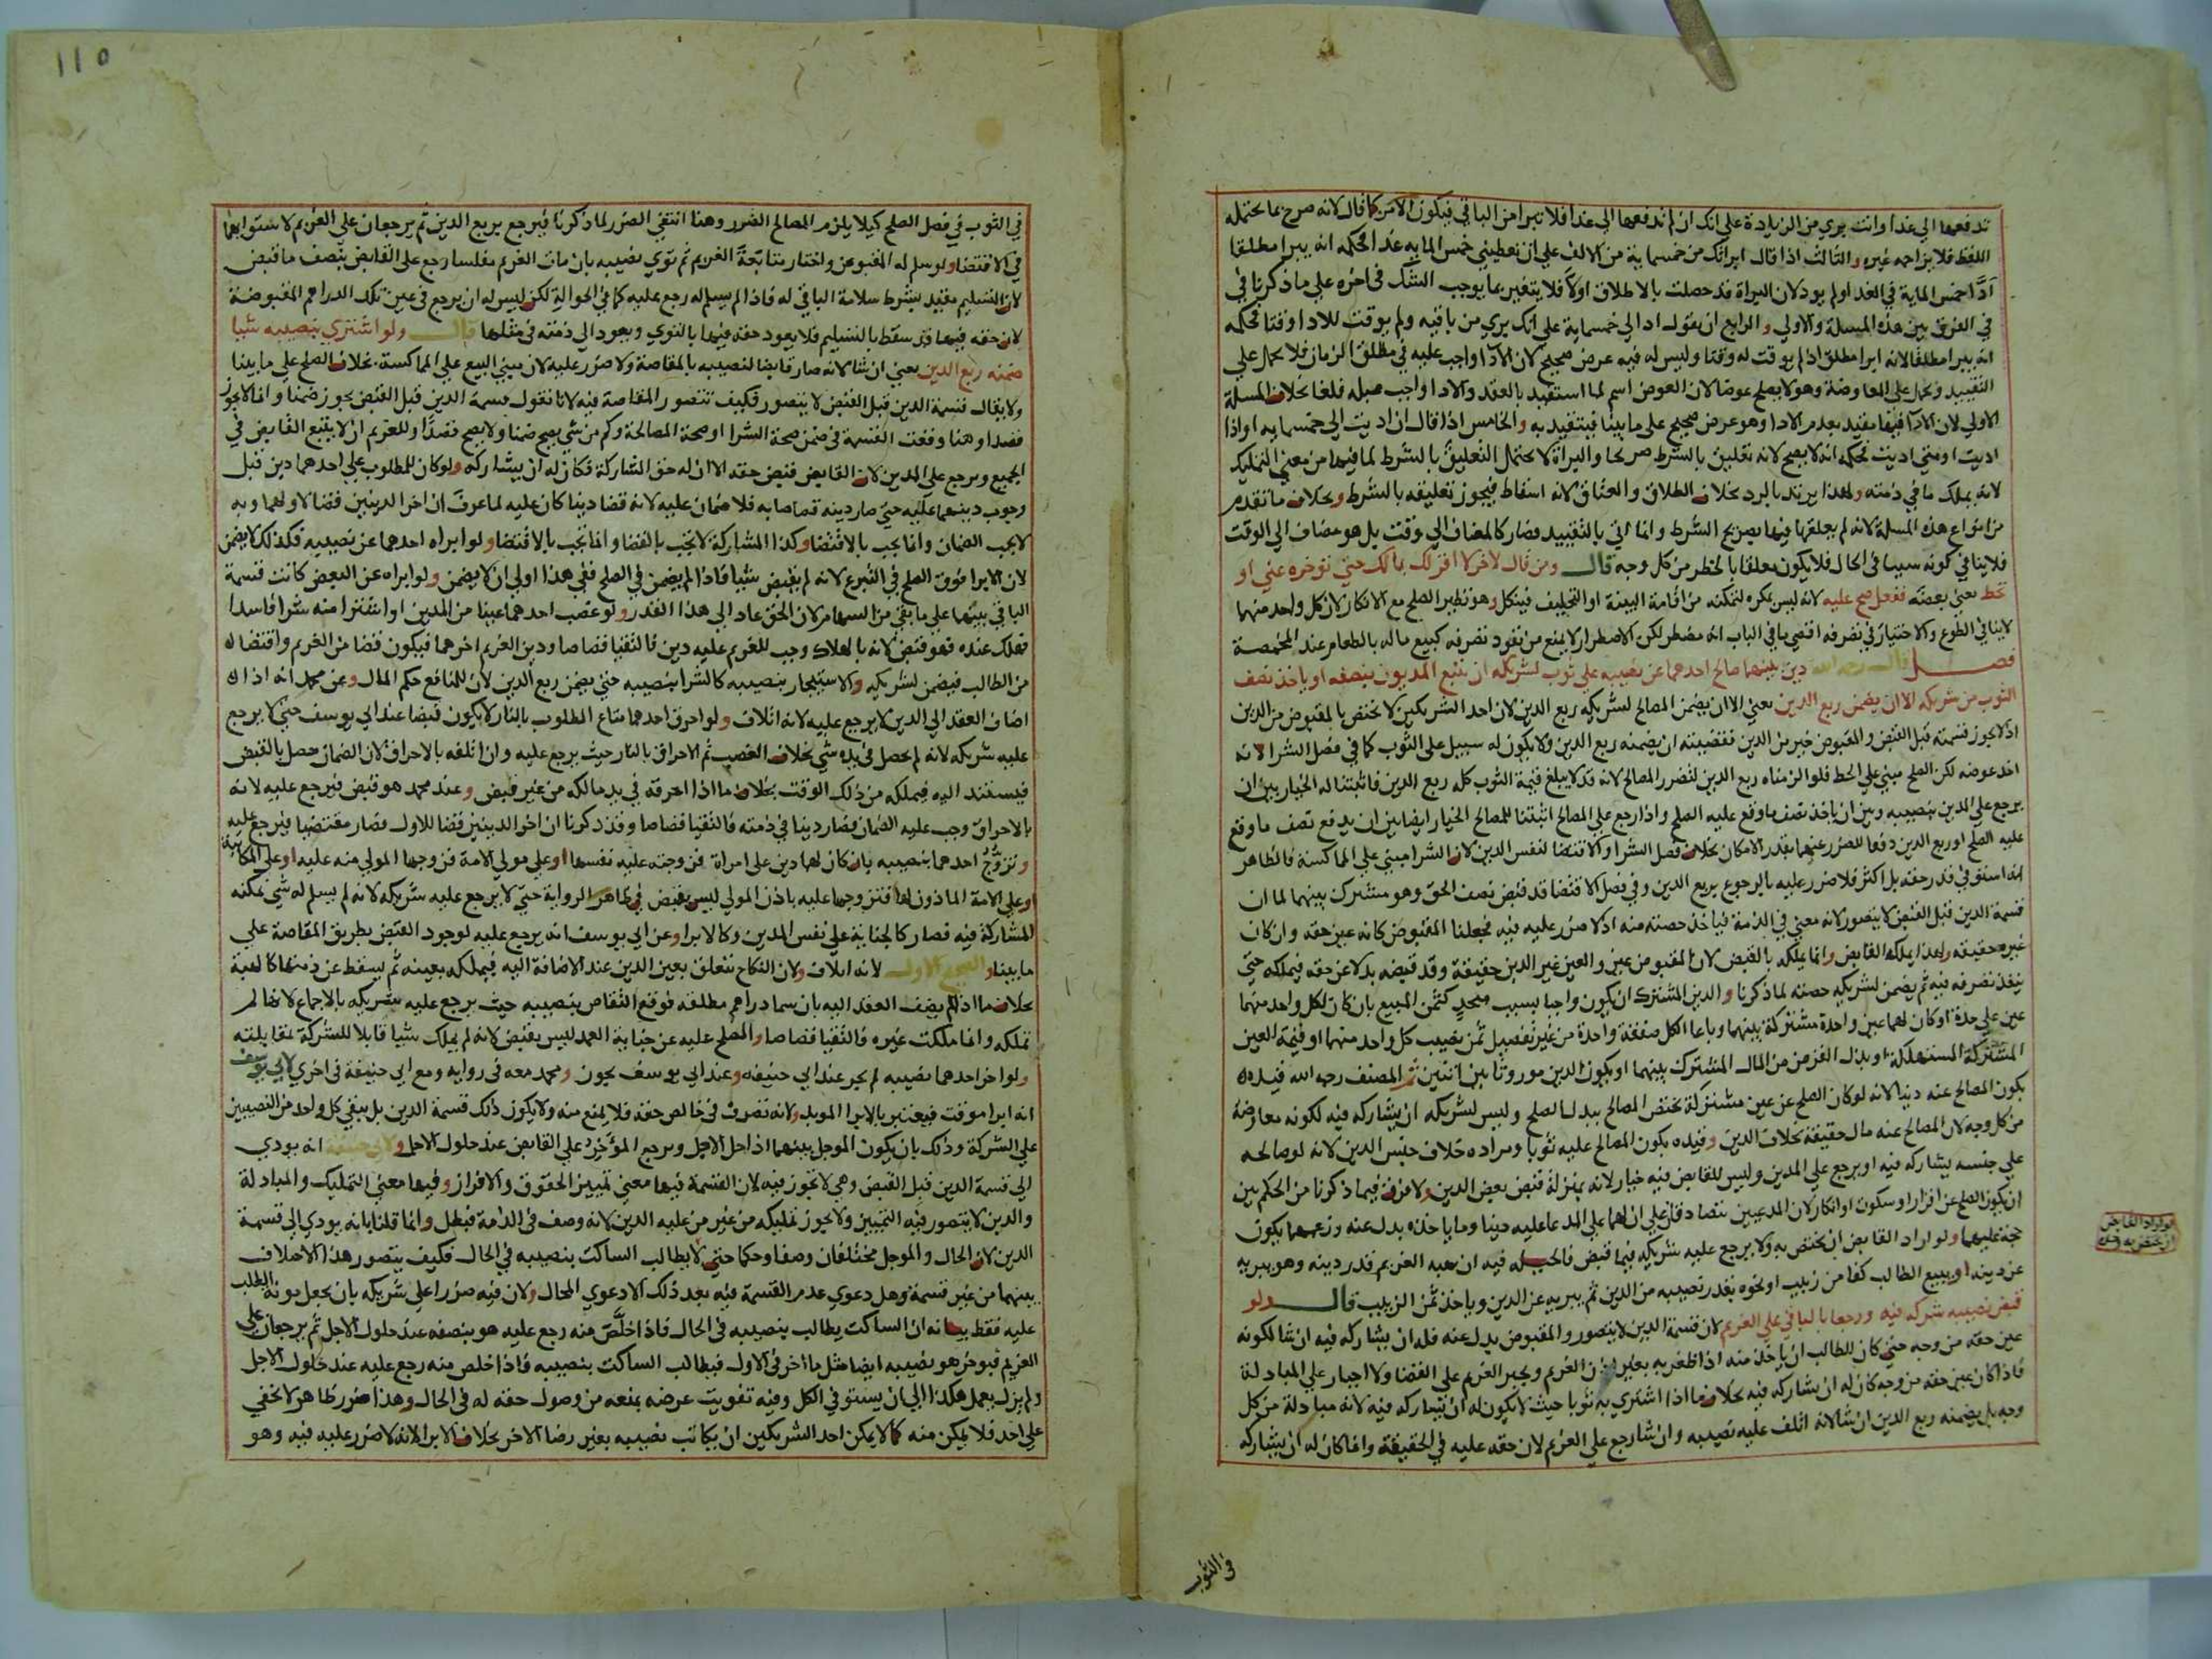 تدفعها الي غدا وانت بري من الزيادة علي انك ان لم تدفعها الي غدا فلا تبرا من الباقي فيكون الامر كما قال لانه صرح بما يحتمله
اللفظ فلا يزاحمه غيره والثالث اذا قال ابراتك من خمسماية من الالف علي ان تعطيني خمس الماية غدا فحكمه انه يبرا مطلقا
ادا خمس الماية في الغد او لم يود لان البراة قد حصلت بالاطلاق اولا فلا يتغير بما يوجب الشك في اخره علي ما ذكرنا في
في الفرق بين هذه المسلة والاولي والرابع ان يقول اد الي خمسماية علي انك بري من باقيه ولم يوقت للادا وقتا فحكمه
انه يبرا مطلقا لانه ابرا مطلق اذ لم يوقت له وقتا وليس له فيه غرض صحيح لان الادا واجب عليه في مطلق الزمان فلا يحمل علي
التقييد ويحمل علي المعاوضة وهو لا يصلح عوضا لان العوض اسم لما استفيد بالعقد والادا واجب قبله فلغا بخلاف المسلة
الاولي لان الادا فيها مقيد بعدم الادا وهو غرض صحيح علي ما بينا فيتقيد به والخامس اذا قال ان اديت الي خمسماية او اذا
اديت او متي اديت فحكمه انه لا يصح لانه تعليق بالشرط صريحا والبراة لا تحتمل التعليق بالشرط لما فيها من معني التمليك
لانه يملك ما في ذمته ولهذا يرتد بالرد بخلاف الطلاق والعتاق لانه اسقاط فيجوز تعليقه بالشرط وبخلاف ما تقدم
من انواع هذه المسلة لانه لم يعلقها فيها بصريح الشرط وانما اتي بالتقييد فصار كالمضاف الي وقت بل هو مضاف الي الوقت
فلا ينافي كونه سببا في الحال فلا يكون معلقا بالخطر من كل وجه قال ومن قال لاخر لا اقر لك بمالك حتي توخره عني او
تحط يعني بعضه ففعل صح عليه لانه ليس بمكره لتمكنه من اقامة البينة او التحليف فينكل وهو نظير الصلح مع الانكار لان كل واحد منهما
لا ينافي الطوع والاختيار في تصرفه اقصي ما في الباب انه مضطر لكن الاضطرار لا يمنع من نفود تصرفه كبيع ماله بالطعام عند المخمصة
فصل قال رحمه الله دين بينهما صالح احدهما عن نصيبه علي ثوب لشريكه ان يتبع المديون بنصفه او ياخذ نصف
الثوب من شريكه الا ان يضمن ربع الدين يعني الا ان يضمن المصالح لشريكه ربع الدين لان احد الشريكين لا يختص بالمقبوض من الدين
اذ لا يجوز قسمته قبل القبض والمقبوض خير من الدين فقضيته ان يضمنه ربع الدين ولا يكون له سبيل علي الثوب كما في فصل الشرا لانه
اخذ عوضه لكن الصلح مبني علي الحط فلو الزمناه ربع الدين لتضرر المصالح لانه قد لا يبلغ قيمة الثوب كله ربع الدين فاثبتنا له الخيار بين ان
يرجع علي الدين بنصيبه وبين ان ياخذ نصف ما وقع عليه الصلح واذا رجع علي المصالح اثبتنا للمصالح الخيار ايضا بين ان يدفع نصف ما وقع
عليه الصلح او ربع الدين دفعا للضرر عنهما بقدر الامكان بخلاف فصل الشرا والاقتضا لنفس الدين لان الشرا مبني علي المماكسة فالظاهر
انه استوفي قدر حقه بل اكثر فلا ضرر عليه بالرجوع بربع الدين وفي فصل الاقتضا قد قبض نصف الحق وهو مشترك بينهما لما ان
قسمة الدين قبل القبض لا يتصور لانه معني في الذمة فياخذ حصته منه اذ لا ضرر عليه فيه فجعلنا المقبوض كانه عين حقه وان كان
غيره حقيقة ولهذا يملكه القابض وانما يملكه بالقبض لان المقبوض عين والعين غير الدين حقيقة وقد قبضه بدلا عن حقه فيملكه حتي
ينفذ تصرفه فيه ثم يضمن لشريكه حصته لما ذكرنا والدين المشترك ان يكون واجبا بسبب متحد كثمن المبيع بان كان لكل واحد منهما
عين علي حدة او كان لهما عين واحدة مشتركة بينهما وباعا الكل صفقة واحدة من غير تفصيل ثمن نصيب كل واحد منهما او قيمة العين
المشتركة المستهلكة او بدل القرض من المال المشترك بينهما او يكون الدين موروثا بين اثنين ثم المصنف رحمه الله قيده
بكون المصالح عنه دينا لانه لو كان الصلح عن عين مشتركة يختص المصالح ببدل الصلح وليس لشريكه ان يشاركه فيه لكونه معاوضة
من كل وجه لان المصالح عنه مال حقيقة بخلاف الدين وقيده بكون المصالح عليه ثوبا ومراده خلاف جنس الدين لانه لو صالحه
علي جنسه يشاركه فيه او يرجع علي المدين وليس للقابض فيه خيار لانه بمنزلة قبض بعض الدين ولا فرق فيما ذكرنا من الحكم بين
ان يكون الصلح عن اقرار او سكوت او انكار لان المدعيين تصادقا علي ان لهما علي المدعا عليه دينا وما ياخذه بدل عنه وزعمهما يكون
حجة عليهما ولو اراد القابض ان يختص به ولا يرجع عليه شريكه فيما قبض فالحيلة فيه ان يهبه الغريم قدر دينه وهو يبريه
عن دينه او يبيع الطالب كفا من زبيب او نحوه بقدر نصيبه من الدين ثم يبريه عن الدين وياخذ ثمن الزبيب قال ولو
قبض نصيبه شركه فيه ورجعا بالباقي علي الغريم لان قسمة الدين لا يتصور والمقبوض بدل عنه فله ان يشاركه فيه ان شا لكونه
عين حقه من وجه حتي كان للطالب ان ياخذ منه اذا ظفر به بغير اذن الغريم ويجبر الغريم علي القضا ولا اجبار علي المبادلة
فاذا كان عين حقه من وجه كان له ان يشاركه فيه بخلاف ما اذا اشتري به ثوبا حيث لا يكون له ان يشاركه فيه لانه مبادلة من كل
وجه بل يضمنه ربع الدين ان شا لانه اتلف عليه نصيبه وان شا رجع علي الغريم لان حقه عليه في الحقيقة وانما كان له ان يشاركه
في الثوب
ولو اراد القابض
ان يختص به
١١٥
في الثوب في فصل الصلح كيلا يلزم المصالح الضرر وهنا انتفي الضرر لما ذكرنا فيرجع بربع الدين ثم يرجعان علي الغريم لاستوايهما
في الاقتضا ولو سلم له المقبوض واختار متابعة الغريم ثم توي نصيبه بان مات الغريم مفلسا رجع علي القابض بنصف ما قبض
لان التسليم مقيد بشرط سلامة الباقي له فاذا لم يسلم له رجع عليه كما في الحوالة لكن ليس له ان يرجع في عين تلك الدراهم المقبوضة
لان حقه فيها قد سقط بالتسليم فلا يعود حقه فيها بالتوي ويعود الي ذمته في مثلها قال ولو اشتري بنصيبه شيا
ضمنه ربع الدين يعني ان شا لانه صار قابضا لنصيبه بالمقاصة ولا ضرر عليه لان مبني البيع علي المماكسة بخلاف الصلح علي ما بينا
ولا يقال قسمة الدين قبل القبض لا يتصور فكيف تتصور المقاصة فيه لانا نقول قسمة الدين قبل القبض يجوز ضمنا وانما لا يجوز
قصدا وهنا وقعت القسمة في ضمن صحة الشرا او صحة المصالحة وكم من شي يصح ضمنا ولا يصح قصدا وللغريم ان لا يتبع القابض في
الجميع ويرجع علي المدين لان القابض قبض حقه الا ان له حق المشاركة فكان له ان يشاركه ولو كان للمطلوب علي احدهما دين قبل
وجوب دينهما عليه حتي صار دينه قصاصا به فلا ضمان عليه لانه قضا دينا كان عليه لما عرف ان اخر الدينين قضا لاولهما وبه
لا يجب الضمان وانما يجب بالاقتضا وكذا المشاركة لا تجب بالقضا وانما تجب بالاقتضا ولو ابراه احدهما عن نصيبه فكذلك لا يضمن
لان الابرا فوق الصلح في التبرع لانه لم يقبض شيا فاذا لم يضمن في الصلح ففي هذا اولي ان لا يضمن ولو ابراه عن البعض كانت قسمة
الباقي بينهما علي ما بقي من السهام لان الحق عاد الي هذا القدر ولو غصب احدهما عينا من المدين او اشترا منه شرا فاسدا
فهلك عنده فهو قبض لانه بالهلاك وجب للغريم عليه دين فالتقيا قصاصا ودين الغريم اخرهما فيكون قضا من الغريم واقتضا
من الطالب فيضمن لشريكه والاستيجار بنصيبه كالشرا بنصيبه حتي يضمن ربع الدين لان للمنافع حكم المال وعن محمد انه اذا
اضاف العقد الي الدين لا يرجع عليه لانه اتلاف ولو احرق احدهما متاع المطلوب بالنار لا يكون قبضا عند ابي يوسف حتي لا يرجع
عليه شريكه لانه لم يحصل في يده شي بخلاف الغصب ثم الاحراق بالنار حيث يرجع عليه وان اتلفه بالاحراق لان الضمان حصل بالقبض
فيستند اليه فيملكه من ذلك الوقت بخلاف ما اذا احرقه في يد مالكه من غير قبض وعند محمد هو قبض فيرجع عليه لانه
بالاحراق وجب عليه الضمان فصار دينا في ذمته فالتقيا قصاصا وقد ذكرنا ان اخر الدينين قضا للاول فصار مقتضيا فيرجع عليه
وتزوج احدهما بنصيبه بان كان لهما دين علي امراة فزوجته عليه نفسها او علي مولي الامة فزوجها المولي منه عليه او علي المكاتبة
او علي الامة الماذون لها فتزوجها عليه باذن المولي ليس بقبض في ظاهر الرواية حتي لا يرجع عليه شريكه لانه لم يسلم له شي يمكنه
المشاركة فيه فصار كالجناية علي نفس المدين وكالابرا وعن ابي يوسف انه يرجع عليه لوجود القبض بطريق المقاصة علي
ما بينا والصحيح الاول لانه اتلاف ولان النكاح تتعلق بعين الدين عند الاضافة اليه فيملكه بعينه ثم يسقط عن ذمتها كالهبة
بخلاف ما اذا لم يضف العقد اليه بان سما دراهم مطلقة فوقع التقاص بنصيبه حيث يرجع عليه شريكه بالاجماع لانها لم
تملكه وانما ملكت غيره فالتقيا قصاصا والصلح عليه عن جناية العمد ليس بقبض لانه لم يملك شيا قابلا للشركة بمقابلته
ولو اخر احدهما نصيبه لم يجز عند ابي حنيفه وعند ابي يوسف يجوز ومحمد معه في رواية ومع ابي حنيفة في اخري لابي يوسف
انه ابرا موقت فيعتبر بالابرا الموبد ولانه تصرف في خالص حقه فلا يمنع منه ولا يكون ذلك قسمة الدين بل يبقي كل واحد من النصيبين
علي الشركة وذلك بان يكون الموجل بينهما اذا حل الاجل ويرجع المؤخر علي القابض عند حلول الاجل ولابي حنيفة انه يودي
الي قسمة الدين قبل القبض وهي لا تجوز فيه لان القسمة فيها معني تمييز الحقوق والافراز وفيها معني التمليك والمبادلة
والدين لا يتصور فيه التمييز ولا يجوز تمليكه من غير من عليه الدين لانه وصف في الذمة فبطل وانما قلنا بانه يودي الي قسمة
الدين لان الحال والموجل مختلفان وصفا وحكما حتي لا يطالب الساكت بنصيبه في الحال فكيف يتصور هذا الاختلاف
بينهما من غير قسمة وهل دعوي عدم القسمة فيه بعد ذلك الا دعوي المحال ولان فيه ضررا علي شريكه بان يجعل مونة الطلب
عليه فقط بيانه ان الساكت يطالب بنصيبه في الحال فاذا اخلص منه رجع عليه هو بنصفه عند حلول الاجل ثم يرجعان علي
الغريم فيوخر هو نصيبه ايضا مثل ما اخر في الاول فيطالب الساكت بنصيبه فاذا خلص منه رجع عليه عند حلول الاجل
ولم يزل يعمل هكذا الي ان يستوفي الكل وفيه تفويت غرضه بمنعه من وصول حقه له في الحال وهذا ضرر ظاهر لا يخفي
علي احد فلا يمكن منه كما لا يمكن احد الشريكين ان يكاتب نصيبه بغير رضا الاخر بخلاف الابرا لانه لا ضرر عليه فيه وهو